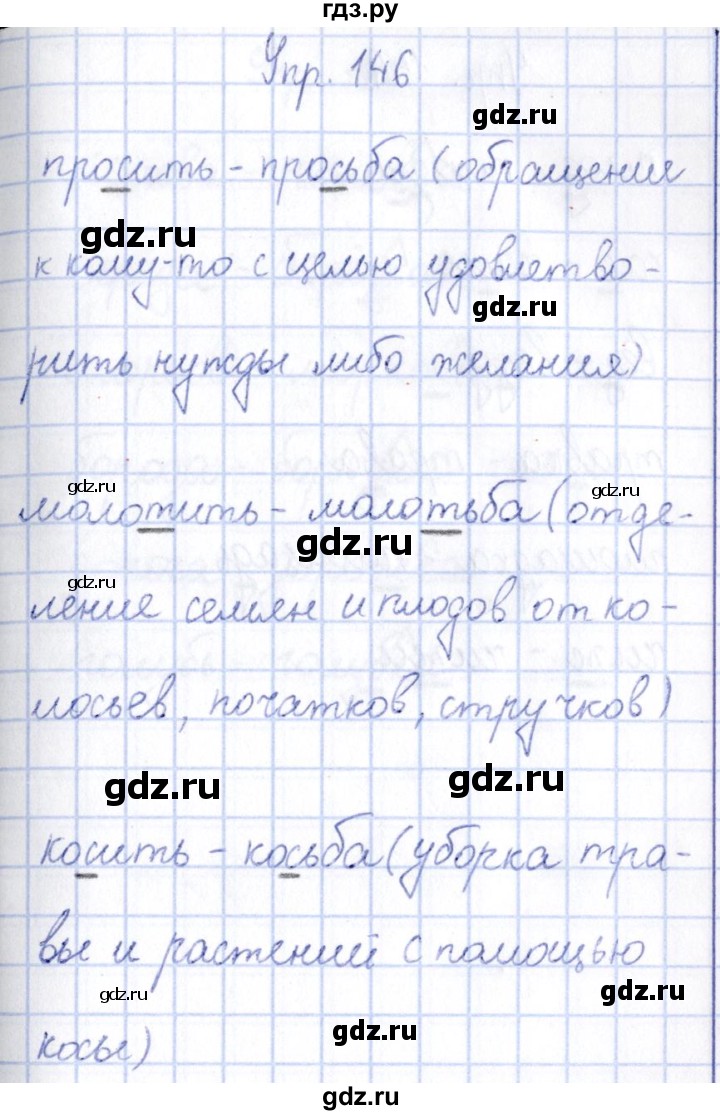 гдз.ру
Упр. 146
gdz.ru
просить - просьба (обращения
gdz.ru
к кому-то с целью удовлетво-
gdz.ru
рить нужды либо желания)
gdz.ru
gdz.ru
молотить - молотьба (отде-
gdz.ru
gdz.ru
ление семян и плодов от ко-
лосьев, початков, стручков)
gdz.ru
gdz.ru
косить - косьба (уборка тра-
вы и растений с помощью
gdz.ru
gdz.ru
косы)
gdz.ru
gdz.ru